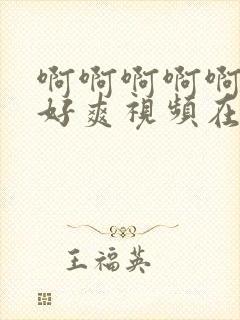 啊啊啊啊啊
好爽視頻在
王福英